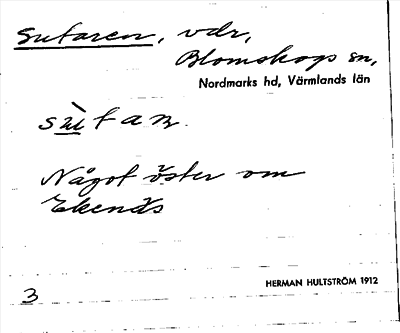 Sutaren, vdr,
Blomskogs sn,
Nordmarks hd, Värmlands län
sùtan.
Något öster om
Ekenäs
HERMAN HULTSTRÖM 1912
3